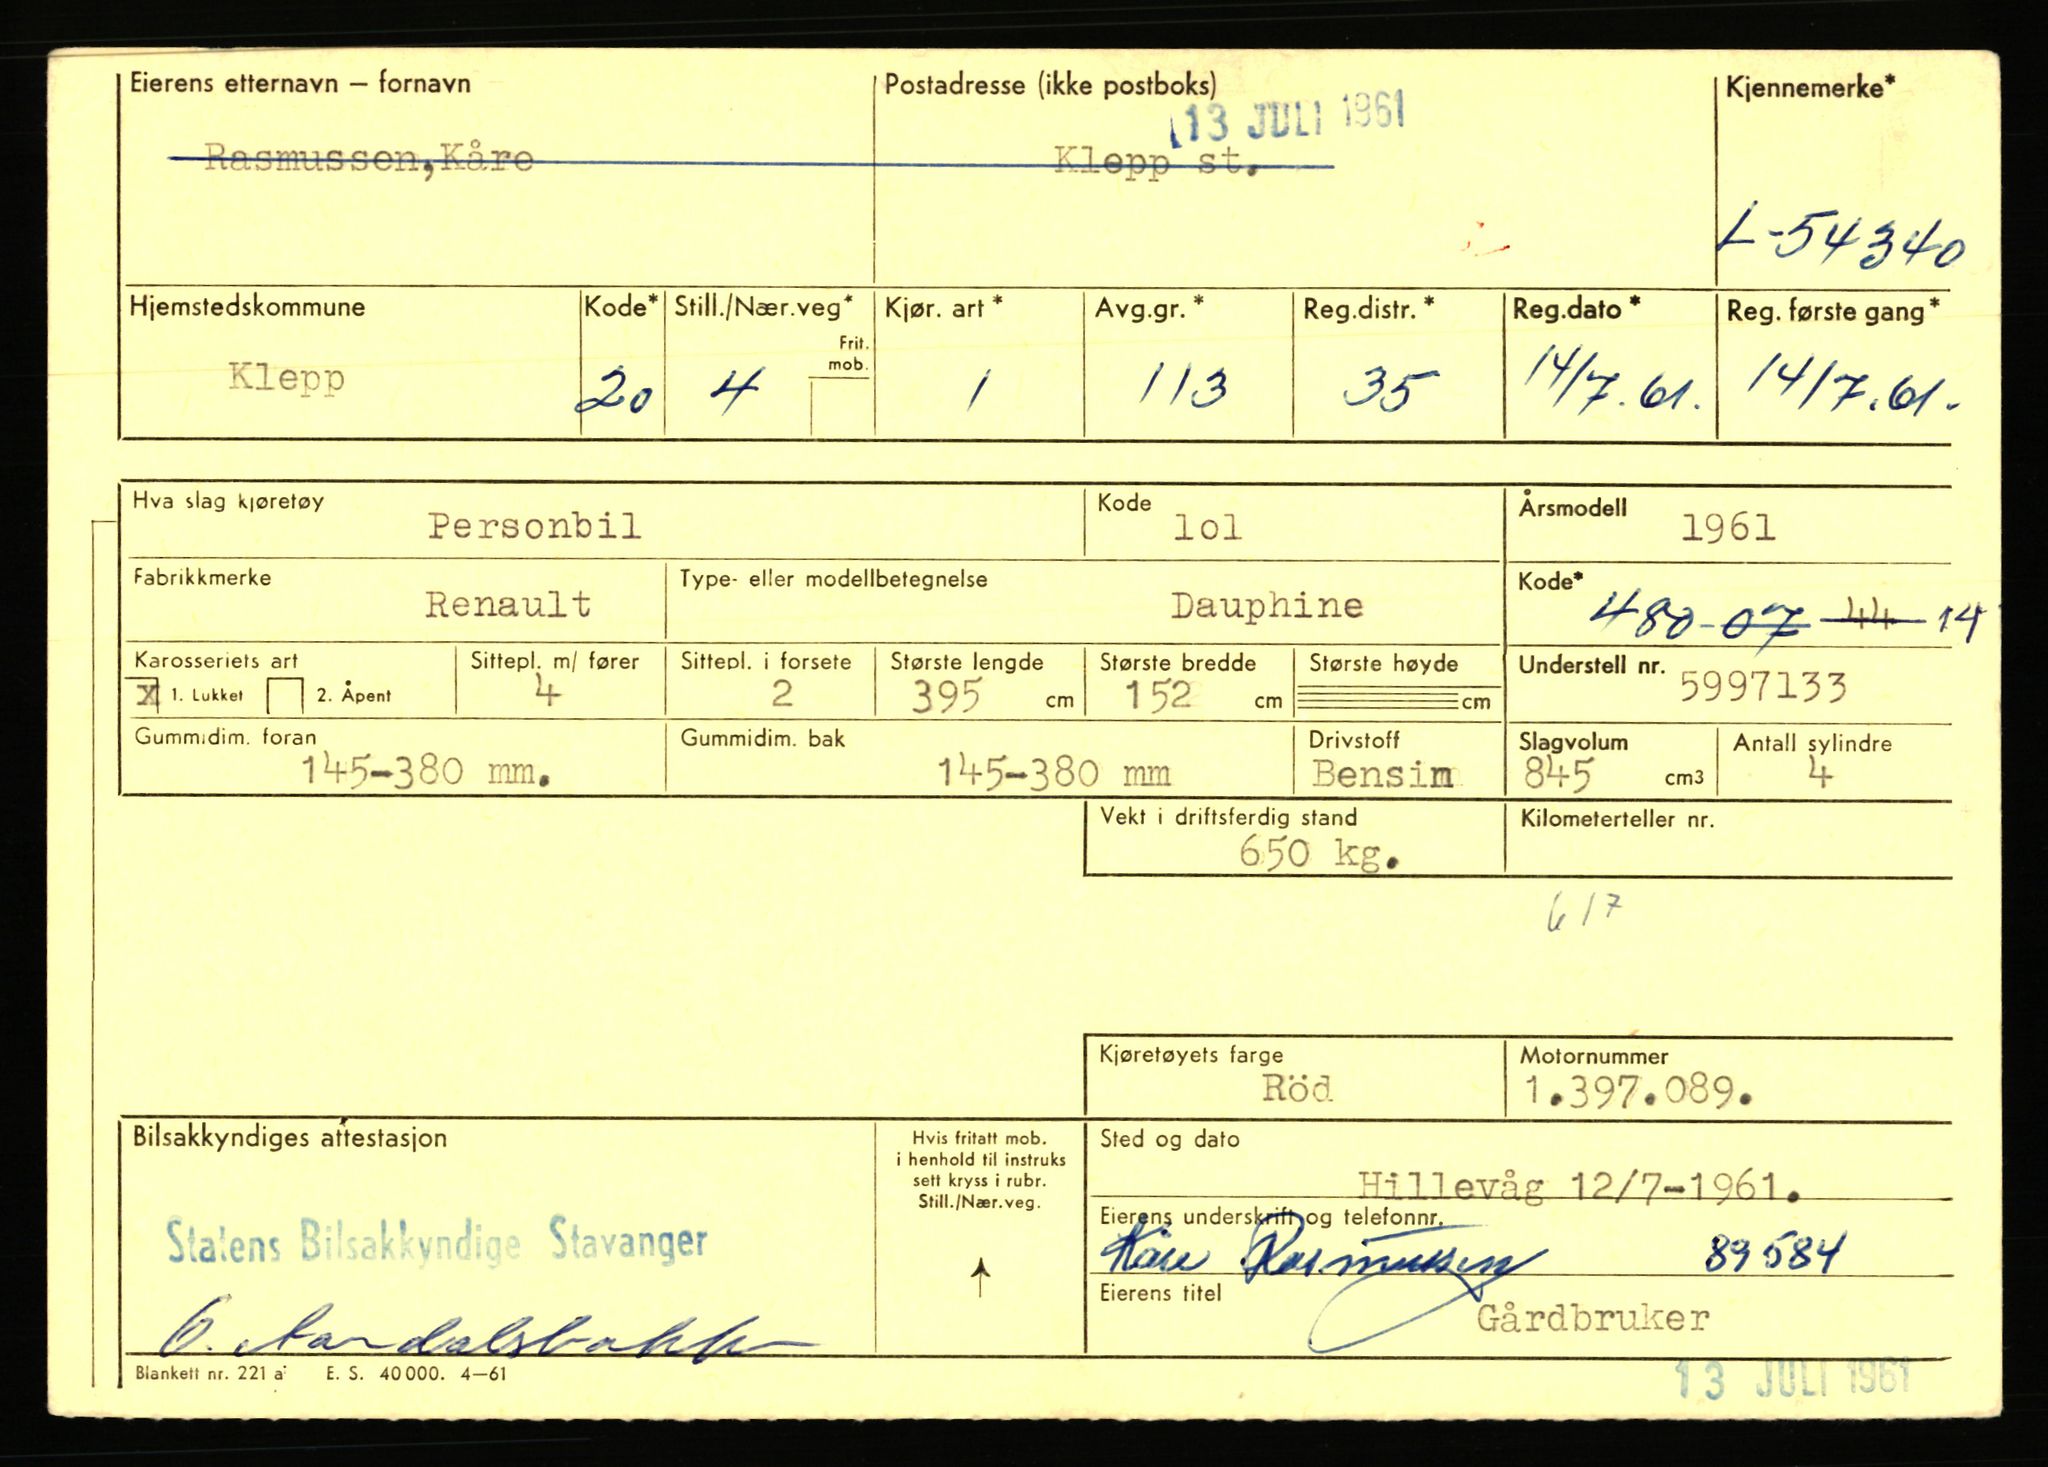 Eierens etternavn – fornavn
Postadresse (ikke postboks)
Kjennemerke*
13 JULI 1961
Rasmussen,Kåre
Klepp st.
L-54340
Hjemstedskommune
Kode*
Still./Nær.veg*
Frit. mob.
Kjør. art *
Avg.gr. *
Reg.distr. *
Reg.dato *
Reg. første gang *
Klepp
20
4
1
113
35
14/7.61.
14/7.61.
Hva slag kjøretøy
Personbil
Kode
lol
Årsmodell
1961
Fabrikkmerke
Renault
Type- eller modellbetegnelse
Dauphine
Kode*
480-07-44-14
Karosseriets art
X 1. Lukket 2. Åpent
Sittepl. m/ fører
4
Sittepl. i forsete
2
Største lengde
395 cm
Største bredde
152 cm
Største høyde
cm
Understell nr.
5997133
Gummidim. foran
145-380 mm.
Gummidim. bak
145-380 mm
Drivstoff
Bensin
Slagvolum
845 cm3
Antall sylindre
4
Vekt i driftsferdig stand
650 kg.
Kilometerteller nr.
6/7
Kjøretøyets farge
Röd
Motornummer
1.397.089.
Bilsakkyndiges attestasjon
Statens Bilsakkyndige Stavanger
Hvis fritatt mob.
i henhold til instruks
sett kryss i rubr.
Still./Nær.veg.
Sted og dato
Hillevåg 12/7-1961.
Eierens underskrift og telefonnr.
Kåre Rasmussen 89584
Eierens titel
Gårdbruker
Blankett nr. 221 a E. S. 40 000. 4–61
13 JULI 1961